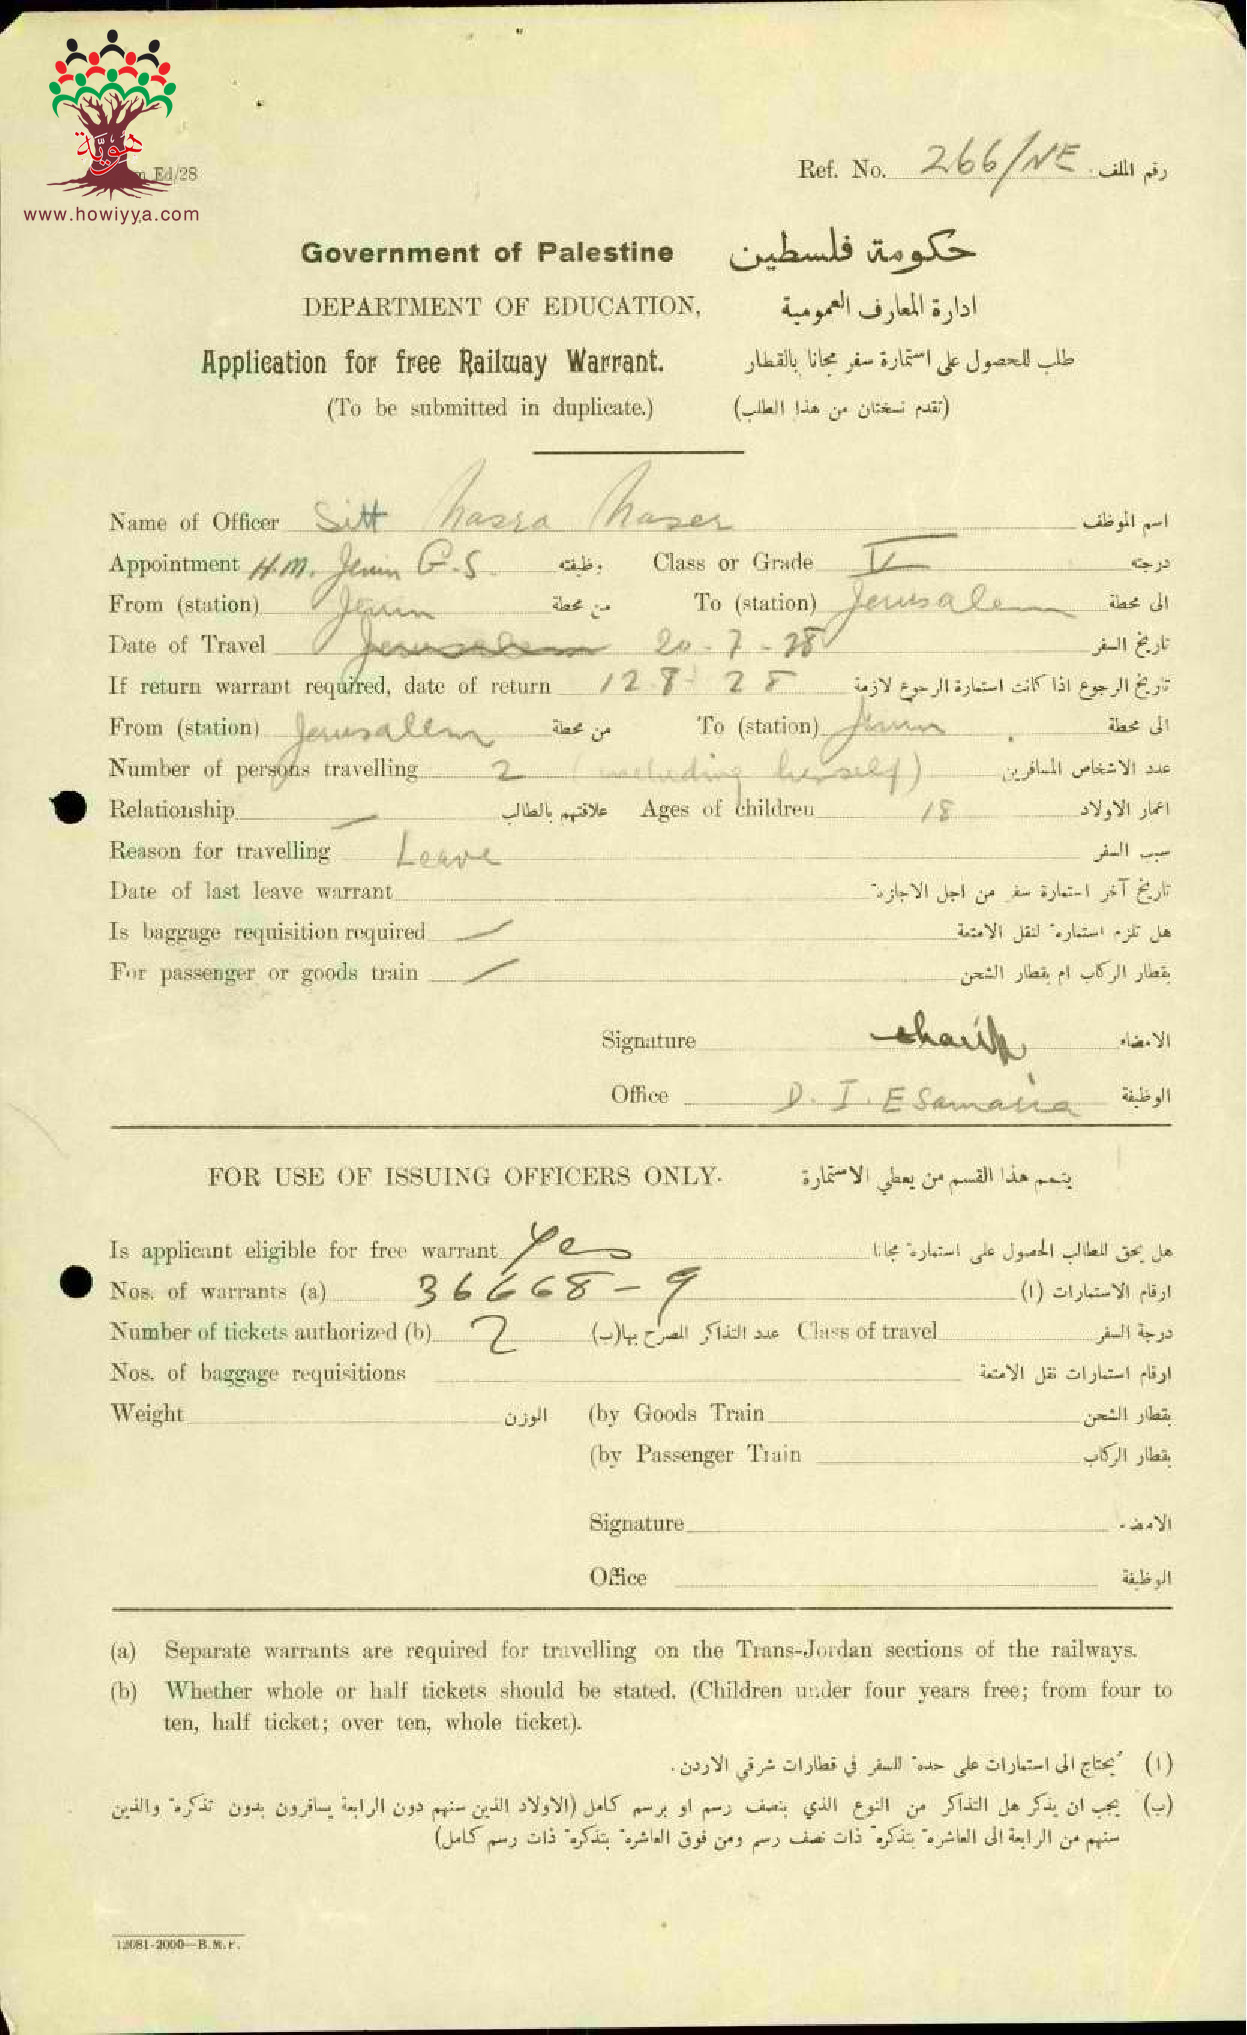 هويّة
www.howiyya.com
Ed/28
Ref. No. 266/NE رقم الملف
Government of Palestine حكومة فلسطين
DEPARTMENT OF EDUCATION, ادارة المعارف العمومية
Application for free Railway Warrant. طلب للحصول على استمارة سفر مجانا بالقطار
(To be submitted in duplicate.) (تقدم نسختان من هذا الطلب)
Name of Officer Sitt Nasra Naser اسم الموظف
Appointment H.M. Jenin G.S. وظيفته Class or Grade V درجته
From (station) Jenin من محطة To (station) Jerusalem الى محطة
Date of Travel Jerusalem 20-7-28 تاريخ السفر
If return warrant required, date of return 12 8 28 تاريخ الرجوع اذا كانت استمارة الرجوع لازمة
From (station) Jerusalem من محطة To (station) Jenin الى محطة
Number of persons travelling 2 (including herself) عدد الاشخاص المسافرين
Relationship — علاقتهم بالطالب Ages of children 18 اعمار الاولاد
Reason for travelling Leave سبب السفر
Date of last leave warrant تاريخ آخر استمارة سفر من اجل الاجازة
Is baggage requisition required — هل تلزم استمارة لنقل الامتعة
For passenger or goods train — بقطار الركاب ام بقطار الشحن
Signature الامضاء
Office D. I. E Samaria الوظيفة
FOR USE OF ISSUING OFFICERS ONLY. يتمم هذا القسم من يعطي الاستمارة
Is applicant eligible for free warrant Yes هل يحق للطالب الحصول على استمارة مجانا
Nos. of warrants (a) 36668-9 ارقام الاستمارات (ا)
Number of tickets authorized (b) 2 عدد التذاكر المصرح بها (ب) Class of travel درجة السفر
Nos. of baggage requisitions ارقام استمارات نقل الامتعة
Weight الوزن (by Goods Train بقطار الشحن
(by Passenger Train بقطار الركاب
Signature الامضاء
Office الوظيفة
(a) Separate warrants are required for travelling on the Trans-Jordan sections of the railways.
(b) Whether whole or half tickets should be stated. (Children under four years free; from four to
ten, half ticket; over ten, whole ticket).
(ا) يحتاج الى استمارات على حدة للسفر في قطارات شرقي الاردن.
(ب) يجب ان يذكر هل التذاكر من النوع الذي بنصف رسم او برسم كامل (الاولاد الذين سنهم دون الرابعة يسافرون بدون تذكرة والذين
سنهم من الرابعة الى العاشرة بتذكرة ذات نصف رسم ومن فوق العاشرة بتذكرة ذات رسم كامل)
12081-2000—B.M.P.